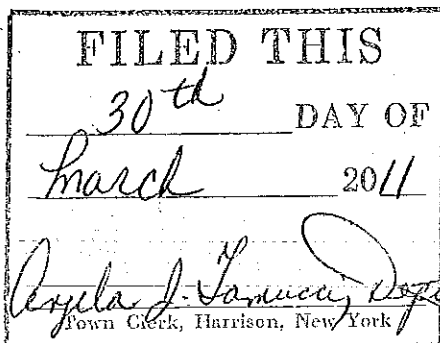 FILED THIS
30th DAY OF
March 2011
Angela J.
Town Clerk, Harrison, New York